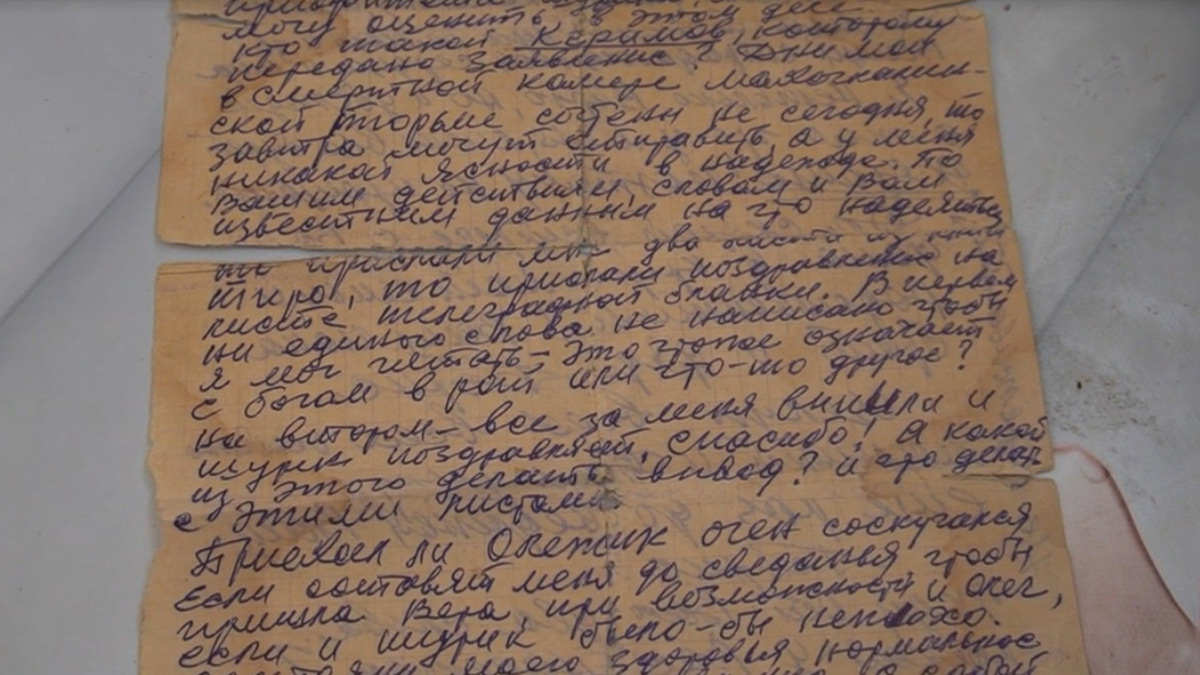 могу оценить, в этом деле
кто такой Керимов, которому
передано заявление? Дни мои
в смертной камере махачкалин-
ской тюрьме сотени не сегодня, то
завтра могут отправить, а у меня
никакой ясности в надежде. По
вашим действиям, словам и вам
известным данным на что надеяться
ты прислали мне два листа из книги
Тигра, то прислали поздравление на
листе телеграфной бланки. В первом
ни единого слова не написано чтобы
я мог читать – это тоже означает
с богом в рот или что-то другое?
на втором – все за меня выпили и
Шурик поздравляет, спасибо! А какой
из этого делать вывод? и что делать
с этими листами
Приехал ли Олежик очен соскучался
если оставят меня до сведанья, чтобы
пришла Вера, при возможности и Олег,
если и Шурик было-бы неплохо.
моего здоровья нормальное